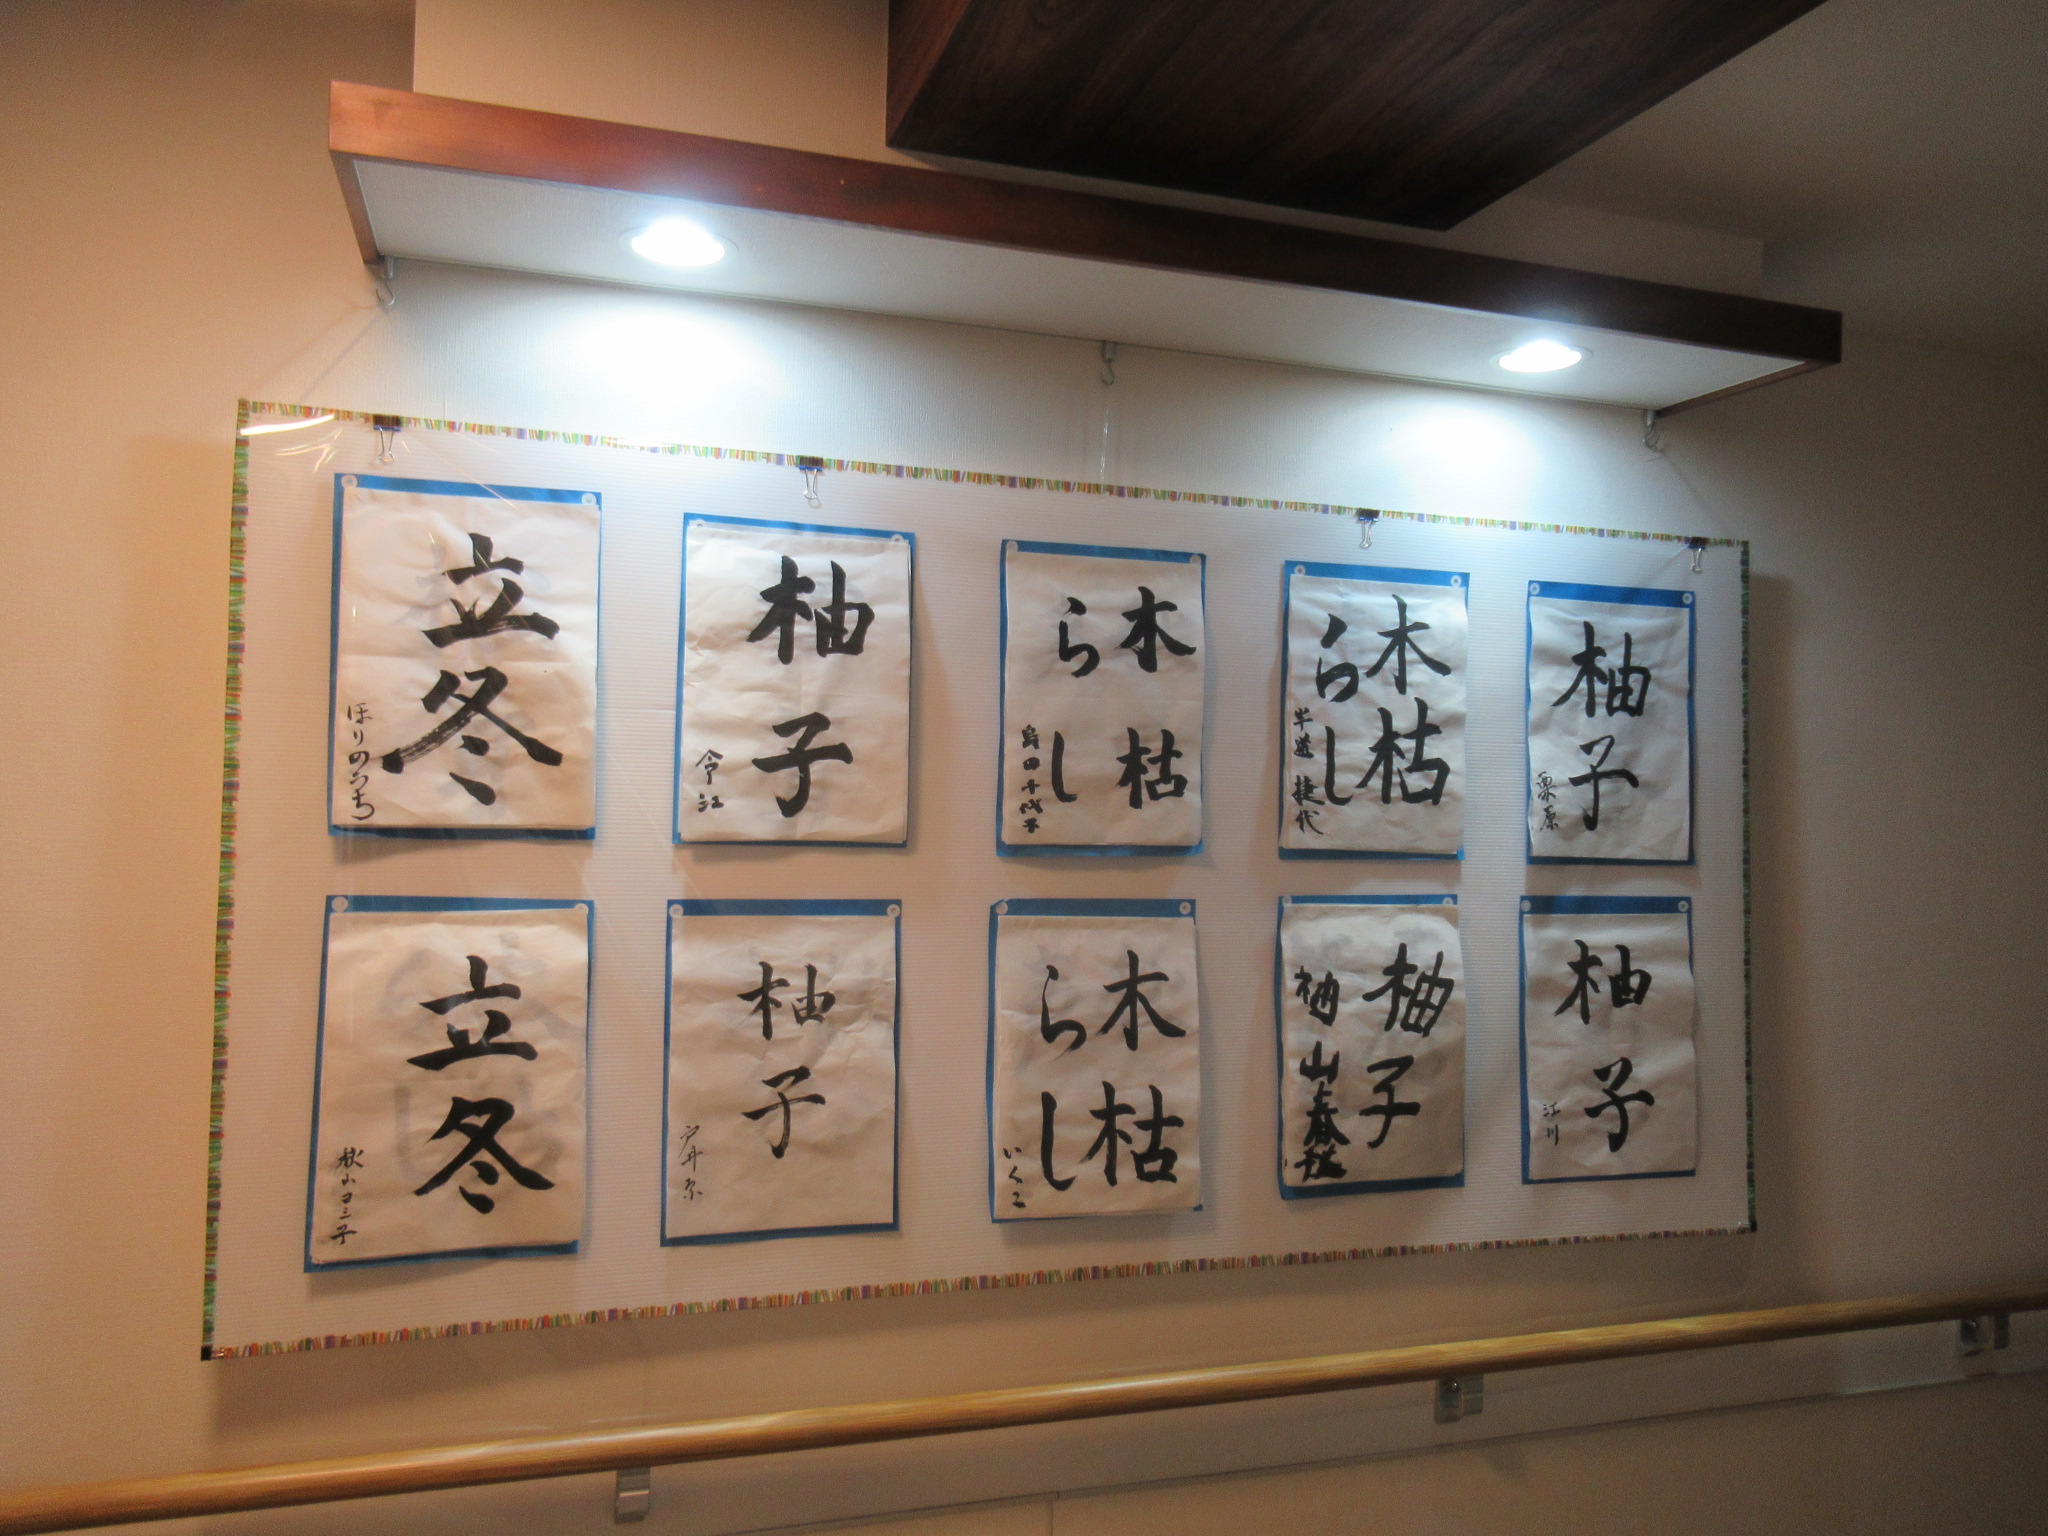 立冬
ほりのうち
柚子
令江
木枯
らし
島田千代子
木枯
らし
捷代
柚子
栗原
立冬
秋山ヨシ子
柚子
戸井京
木枯
らし
いくこ
柚子
柚子
江川